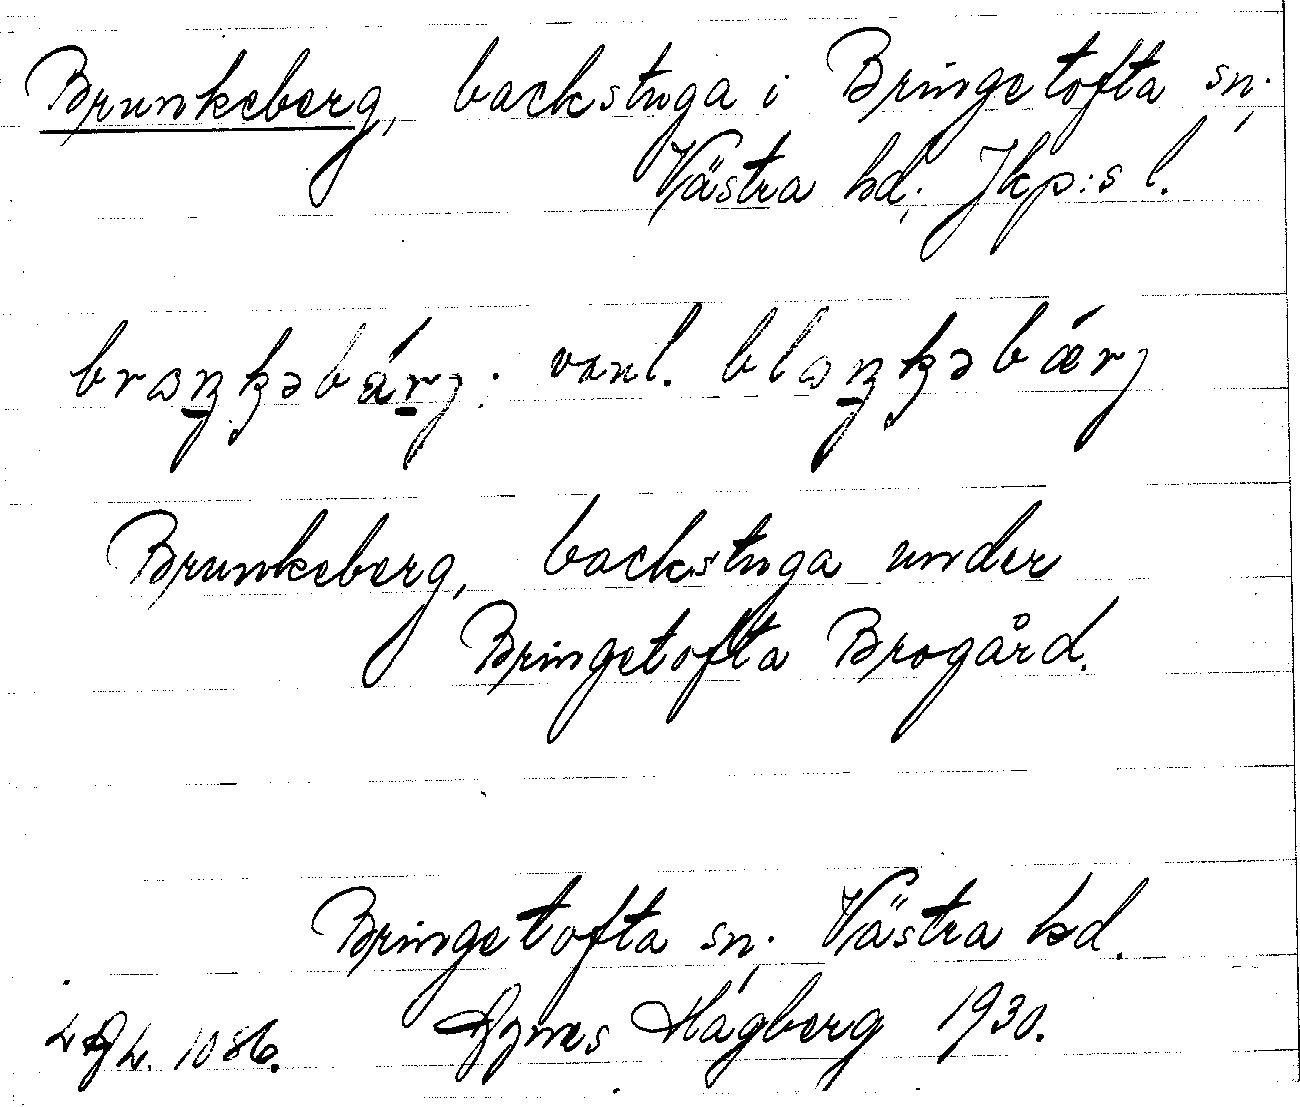 Brunkeberg, backstuga i Bringetofta sn,
Västra hd, Jkp:s l.
vanl.
Brunkeberg, backstuga under
Bringetofta Brogård.
Bringetofta sn, Västra hd.
1086. Agnes Hågberg 1930.